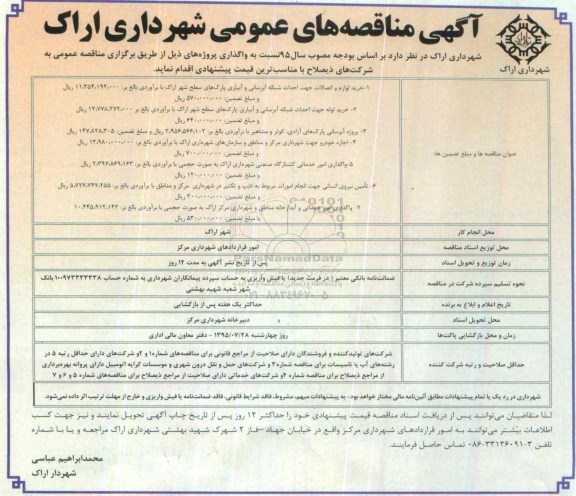 آگهی مناقصه‌های عمومی شهرداری اراک
شهرداری اراک
شهرداری اراک در نظر دارد بر اساس بودجه مصوب سال ۹۵ نسبت به واگذاری پروژه‌های ذیل از طریق برگزاری مناقصه عمومی به
شرکت‌های ذیصلاح با مناسب‌ترین قیمت پیشنهادی اقدام نماید.
عنوان مناقصه ها و مبلغ تضمین ها:
۱-خرید لوازم و اتصالات جهت احداث شبکه آبرسانی و آبیاری پارک‌های سطح شهر اراک با برآوردی بالغ بر: ۱۱،۳۵۴،۱۹۲،۰۰۰ ریال
و مبلغ تضمین: ۵۷۰،۰۰۰،۰۰۰ ریال
۲- خرید لوله جهت احداث شبکه آبرسانی و آبیاری پارک‌های سطح شهر اراک با برآوردی بالغ بر: ۱۲،۷۷۸،۳۷۲،۰۰۰ ریال
و مبلغ تضمین: ۶۴۰،۰۰۰،۰۰۰ ریال
۳- پروژه آبرسانی پارک‌های آزادی، کوثر و مشاهیر با برآوردی بالغ بر: ۲،۹۵۶،۵۶۶،۱۰۲ ریال و مبلغ تضمین: ۱۴۷،۸۲۸،۳۰۵ ریال
۴- اجاره خودرو جهت شهرداری مرکز و مناطق و سازمان‌های شهرداری اراک با برآوردی بالغ بر: ۱۳،۹۸۰،۰۰۰،۰۰۰ ریال
و مبلغ تضمین: ۷۰۰،۰۰۰،۰۰۰ ریال
۵-واگذاری امور خدماتی کشتارگاه صنعتی شهرداری اراک به صورت حجمی با برآوردی بالغ بر: ۲،۳۹۷،۸۶۹،۱۶۳ ریال
و مبلغ تضمین: ۱۲۰،۰۰۰،۰۰۰ ریال
۶- تأمین نیروی انسانی جهت انجام امورات مربوط به تایپ و تکثیر در شهرداری مرکز و مناطق با برآوردی بالغ بر: ۵،۷۷۷،۷۴۷،۲۵۵ ریال
و مبلغ تضمین: ۳۰۰،۰۰۰،۰۰۰ ریال
۷- واگذاری امور خدماتی و آبدارخانه مناطق و شهرداری مرکز اراک به صورت حجمی با برآوردی بالغ بر: ۱۰،۴۴۵،۹۱۲،۱۴۲ ریال
و مبلغ تضمین: ۵۳۰،۰۰۰،۰۰۰ ریال
محل انجام کار
شهر اراک
محل توزیع اسناد مناقصه
امور قراردادهای شهرداری مرکز
زمان توزیع و تحویل اسناد
پس از تاریخ نشر آگهی به مدت ۱۲ روز
نحوه تسلیم سپرده شرکت در مناقصه
ضمانت‌نامه بانکی معتبر (در فرمت جدید) یا فیش واریزی به حساب سپرده پیمانکاران شهرداری به شماره حساب ۱۰۰۹۷۳۳۳۳۳۳۸ بانک
شهر شعبه شهید بهشتی
تاریخ اعلام و ابلاغ به برنده
حداکثر یک هفته پس از بازگشایی
محل تحویل اسناد
دبیرخانه شهرداری مرکز
زمان و محل بازگشایی پاکت‌ها
روز چهارشنبه ۱۳۹۵/۰۷/۲۸ - دفتر معاون مالی اداری
حداقل صلاحیت و رتبه شرکت کننده
شرکت‌های تولیدکننده و فروشندگان دارای صلاحیت از مراجع قانونی برای مناقصه‌های شماره ۱ و ۲ و شرکت‌های دارای حداقل رتبه ۵ در
رشته‌های آب یا تاسیسات برای مناقصه شماره ۳ و شرکت‌های حمل و نقل درون شهری و موسسات کرایه اتومبیل دارای پروانه بهره‌برداری
از مراجع ذیصلاح برای مناقصه شماره ۴ و شرکت‌های خدماتی دارای صلاحیت از مراجع ذیصلاح برای مناقصه‌های شماره ۵ و ۶ و ۷
شهرداری در رد یک یا تمام پیشنهادات مطابق آئین‌نامه مالی مختار خواهد بود. - به پیشنهادات مبهم، مشروط، فاقد شرایط قانونی، فاقد ضمانت‌نامه یا فیش واریزی و خارج از مهلت ترتیب اثر داده نمی‌شود.
لذا متقاضیان می‌توانند پس از دریافت اسناد مناقصه قیمت پیشنهادی خود را حداکثر ۱۲ روز پس از تاریخ چاپ آگهی تحویل نمایند و نیز جهت کسب
اطلاعات بیشتر می‌توانند به امور قراردادهای شهرداری مرکز واقع در خیابان جهاد -فاز ۲ شهرک شهید بهشتی شهرداری اراک مراجعه و یا با شماره
تلفن ۳۳۱۳۶۰۹۱۰۳-۰۸۶ تماس حاصل فرمایند.
محمدابراهیم عباسی
شهردار اراک
ParsNamadData
۰۲۱-۸۸۳۴۹۶۷۰-۵